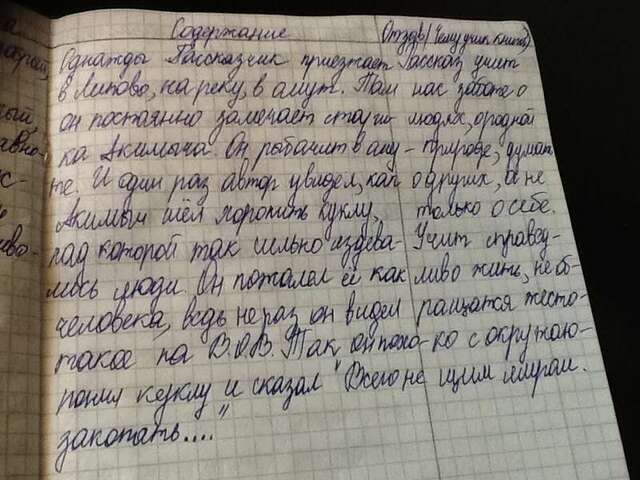 Содержание
Однажды Рассказчик приезжает
в Липово, на реку, в омут. Там
он постоянно замечает стари-
ка Акимыча. Он рыбачит в ому-
те. И один раз автор увидел, как
Акимыч шёл хоронить куклу,
над которой так сильно издева-
лись люди. Он пожалел её как
человека, ведь не раз он видел
такое на В.О.В. Так он похо-
ронил куклу и сказал "Всего не
закопать...."
Отзыв (Чему учит книга)
Рассказ учит
нас заботе о
людях, о родной
природе, думать
о других, а не
только о себе.
Учит справед-
ливо жить, не об-
ращатся жесто-
ко с окружаю-
щим миром.